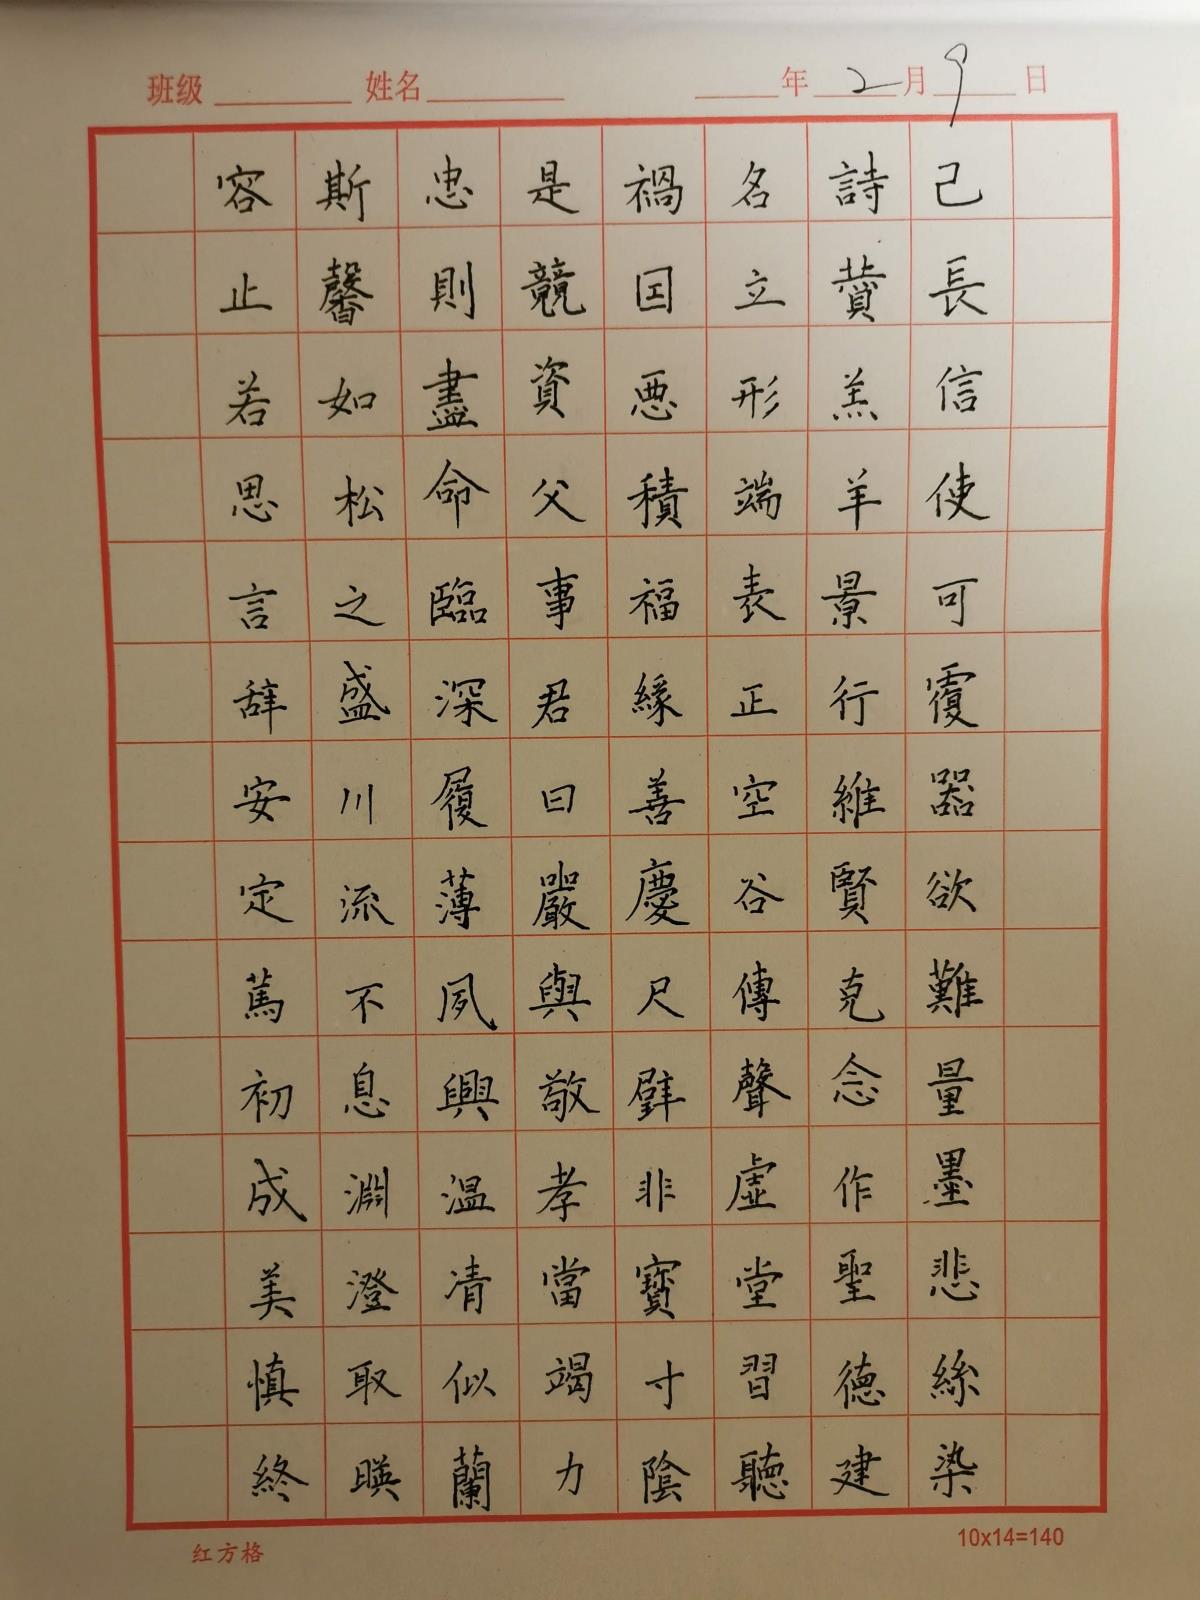 班级 姓名 年 2 月 9 日
己長信使可覆器欲難量墨悲絲染
詩讃羔羊景行維賢克念作聖德建
名立形端表正空谷傳聲虛堂習聽
禍因惡積福緣善慶尺璧非寶寸陰
是競資父事君曰嚴與敬孝當竭力
忠則盡命臨深履薄夙興温凊似蘭
斯馨如松之盛川流不息淵澄取暎
容止若思言辞安定篤初成美慎終
红方格 10x14=140